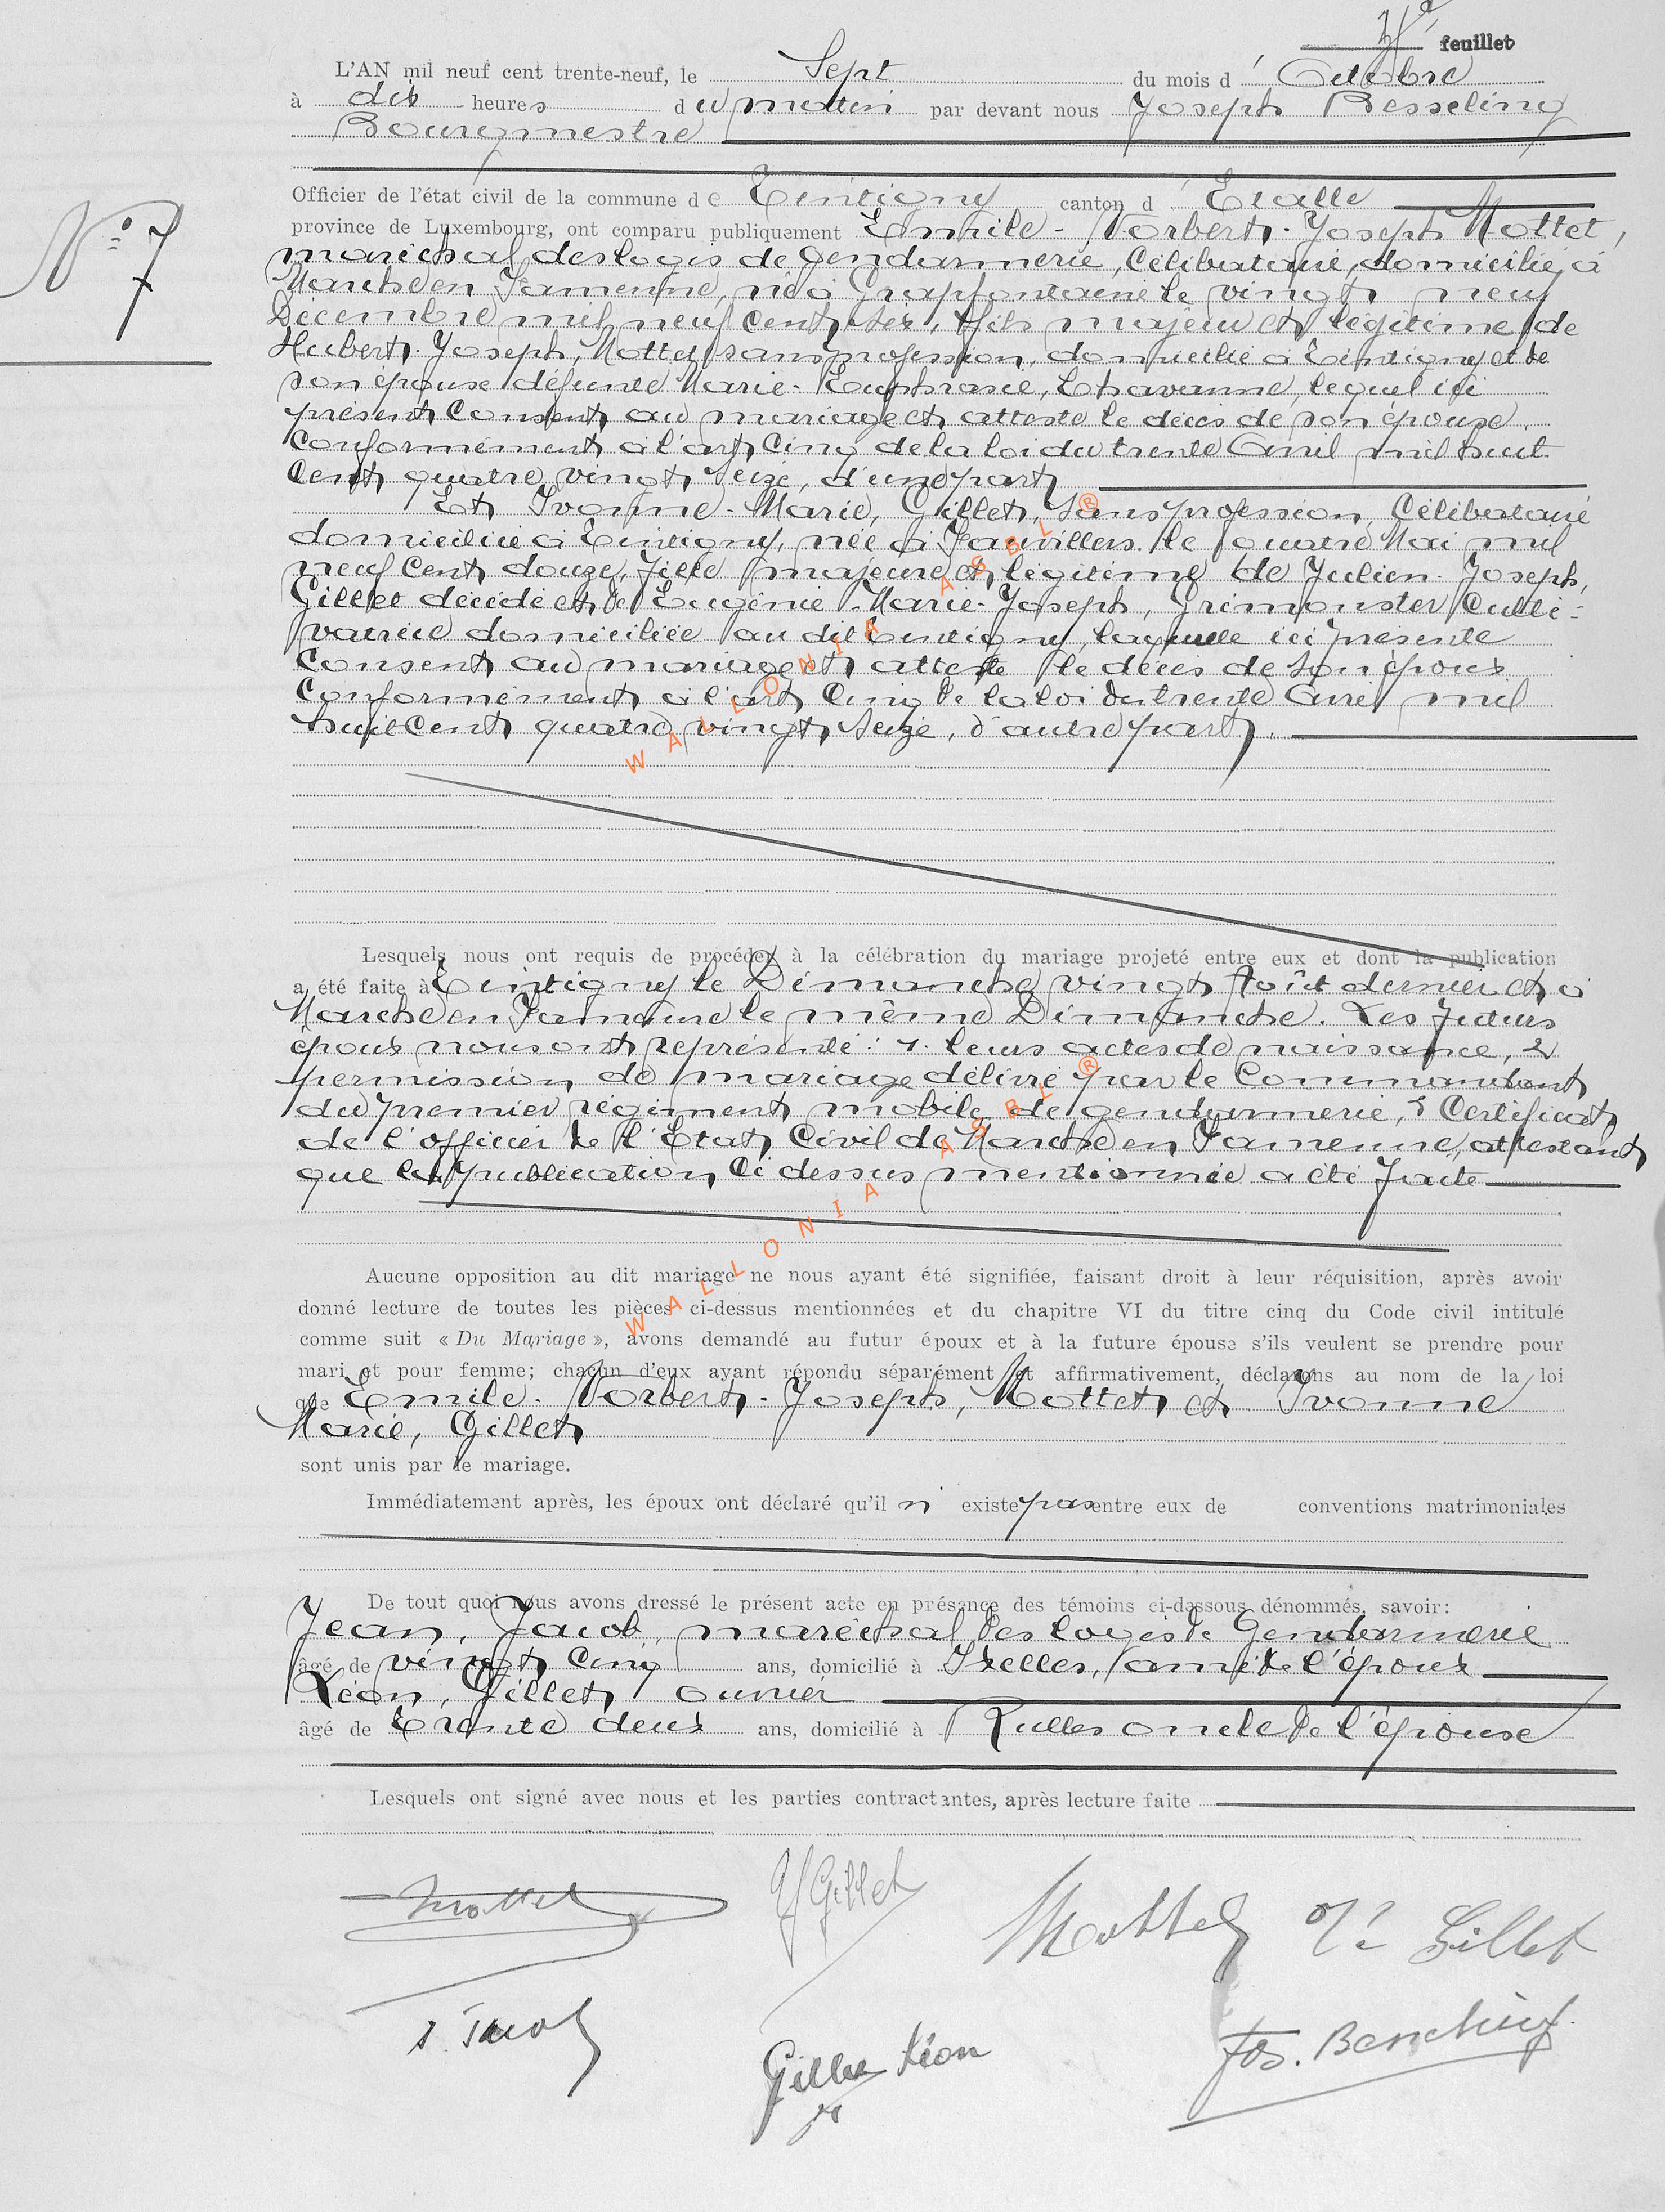 feuillet
L'AN mil neuf cent trente-neuf, le Sept du mois d' Octobre
à dix heures du matin par devant nous Joseph Besseling
Bourgmestre
Officier de l'état civil de la commune de Tintigny canton d' Etalle
province de Luxembourg, ont comparu publiquement Emile - Norbert - Joseph Mottet,
N° 7
maréchal des logis de gendarmerie, Célibataire, domicilié à
Marche en Famenne, né à Grapfontaine le vingt neuf
Décembre mil neuf cent six, fils majeur et légitime de
Hubert - Joseph, Mottet, sans profession, domicilié à Tintigny et de
son épouse défunte Marie - Euphrasie, Chavanne, lequel ici
présent Consent au mariage et atteste le décès de son épouse
Conformément à l'art Cinq de la loi du trente Avril mil huit
Cent quatre vingt seize, d'une part
Et Yvonne - Marie, Gillet, sans profession, Célibataire
domiciliée à Tintigny, née à Fauvillers le quatre Mai mil
neuf Cent douze, fille majeure et légitime de Julien - Joseph,
Gillet décédé et de Eugénie - Marie - Joseph, Grimonster Culti-
vatrice domiciliée au dit Tintigny, laquelle ici présente
Consent au mariage et atteste le décès de son époux
Conformément à l'art Cinq de la loi du trente Avril mil
huit Cent quatre vingt seize, d'autre part.
Lesquels nous ont requis de procéder à la célébration du mariage projeté entre eux et dont la publication
a été faite à Tintigny le Dimanche vingt Août dernier et à
Marche en Famenne le même Dimanche. Les futurs
époux nous ont représenté : 1. leurs actes de naissance, 2
permission de mariage délivré par le Commandant
du premier régiment mobile de gendarmerie, 3 Certificat
de l'officier de l'Etat Civil de Marche en Famenne, attestant
que la publication ci dessus mentionnée a été faite
Aucune opposition au dit mariage ne nous ayant été signifiée, faisant droit à leur réquisition, après avoir
donné lecture de toutes les pièces ci-dessus mentionnées et du chapitre VI du titre cinq du Code civil intitulé
comme suit « Du Mariage », avons demandé au futur époux et à la future épouse s'ils veulent se prendre pour
mari et pour femme; chacun d'eux ayant répondu séparément et affirmativement, déclarons au nom de la loi
que Emile - Norbert - Joseph, Mottet et Yvonne
Marie, Gillet
sont unis par le mariage.
Immédiatement après, les époux ont déclaré qu'il n' existe pas entre eux de conventions matrimoniales
De tout quoi nous avons dressé le présent acte en présence des témoins ci-dessous dénommés, savoir:
Jean, Jacob, maréchal des logis de Gendarmerie
âgé de vingt Cinq ans, domicilié à Ixelles, ami de l'époux
Léon, Gillet, ouvrier
âgé de Trente deux ans, domicilié à Rulles oncle de l'épouse
Lesquels ont signé avec nous et les parties contractantes, après lecture faite
Mottet Y Gillet Mottet Gillet
J. Jacob Gillet Léon Jos.
WALLONIA ASBL ®
WALLONIA ASBL ®